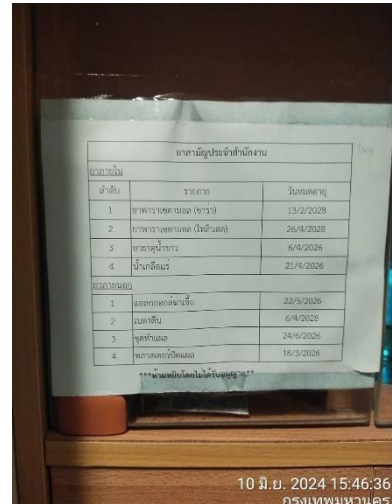 ยาสามัญประจำสำนักงาน
ยาภายใน
ลำดับ รายการ วันหมดอายุ
1 ยาพาราเซตามอล (ซารา) 13/2/2028
2 ยาพาราเซตามอล (ไทลินอล) 26/4/2028
3 ยาธาตุน้ำขาว 6/4/2026
4 น้ำเกลือแร่ 21/4/2026
ยาภายนอก
1 แอลกอฮอล์ฆ่าเชื้อ 22/5/2026
2 เบตาดีน 6/4/2028
3 ชุดทำแผล 24/6/2026
4 พลาสเตอร์ปิดแผล 18/3/2026
***ห้ามหยิบโดยไม่ได้รับอนุญาต**
10 มิ.ย. 2024 15:46:36
กรุงเทพมหานคร